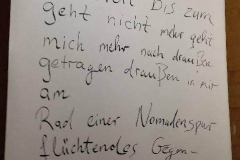 bis zum
geht nicht mehr geht
mich mehr nach drauße
getragen draußen in mir
am
Rad einer Nomadenspur
flüchtendes Gegen-